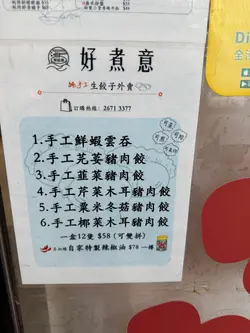 好煮意
生餃子外賣
訂購熱線: 2671 3377
1.手工鮮蝦雲吞
2.手工芫荽豬肉餃
3.手工韮菜豬肉餃
4.手工芹菜木耳豬肉餃
5.手工粟米冬菇豬肉餃
6.手工椰菜木耳豬肉餃
一盒12隻 $58 (可雙拼)
自家特製辣椒油 $78 一樽
Di